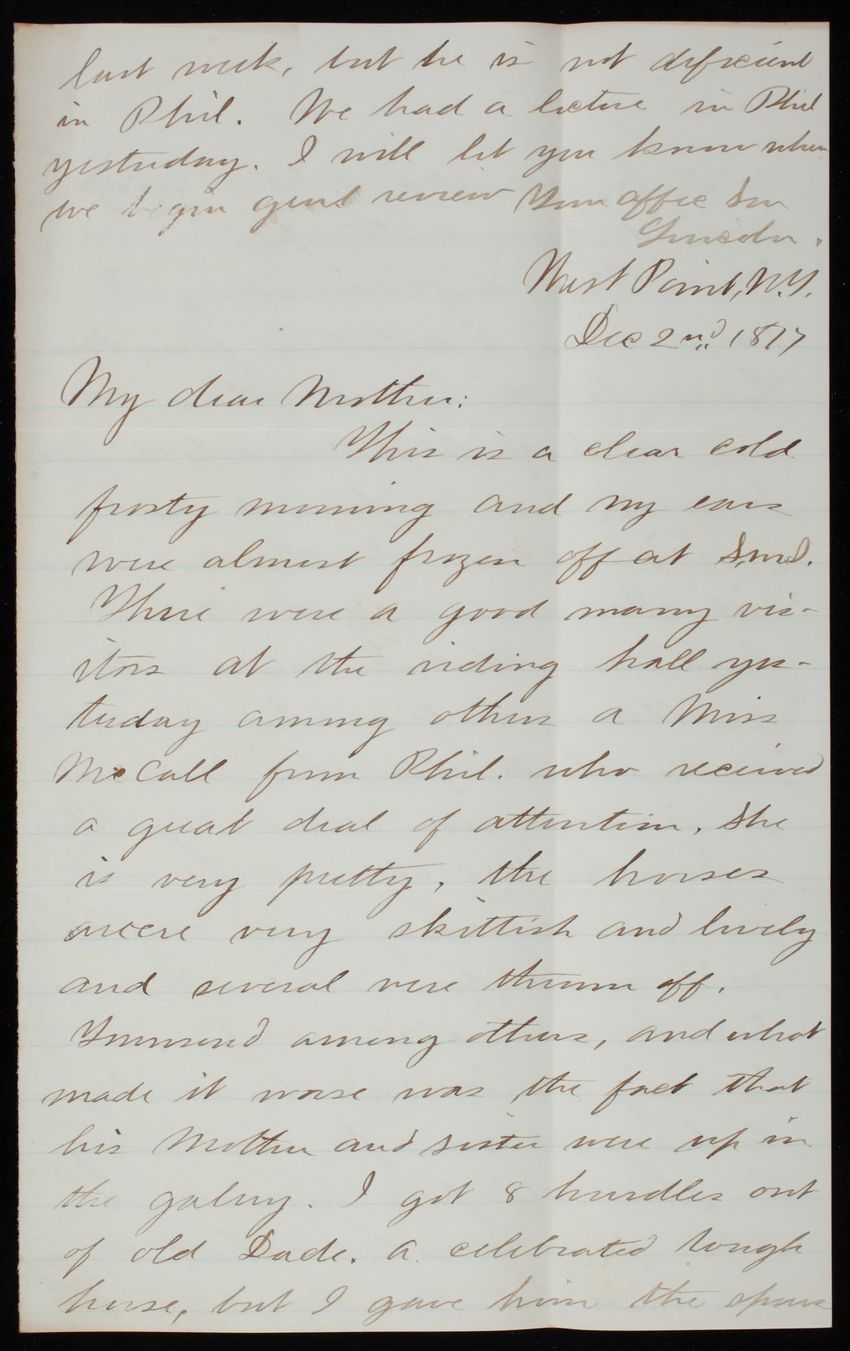 last week, but he is not deficient
in Phil. We had a lecture in Phil
yesterday. I will let you know when
we begin genl review Your affec Son
Lincoln.
West Point, N.Y.
Dec 2nd 1877
My dear Mother:
This is a clear cold
frosty morning and my ears
were almost frozen off at
There were a good many vis-
itors at the riding hall yes-
terday among others a Miss
McCall from Phil. who received
a great deal of attention. She
is very pretty. the horses
were very skittish and lively
and several were thrown off.
Townsend among others, and what
made it worse was the fact that
his Mother and sister were up in
the galery. I got 8 hurdles out
of old Dade. a celebrated rough
horse, but I gave him the spurs